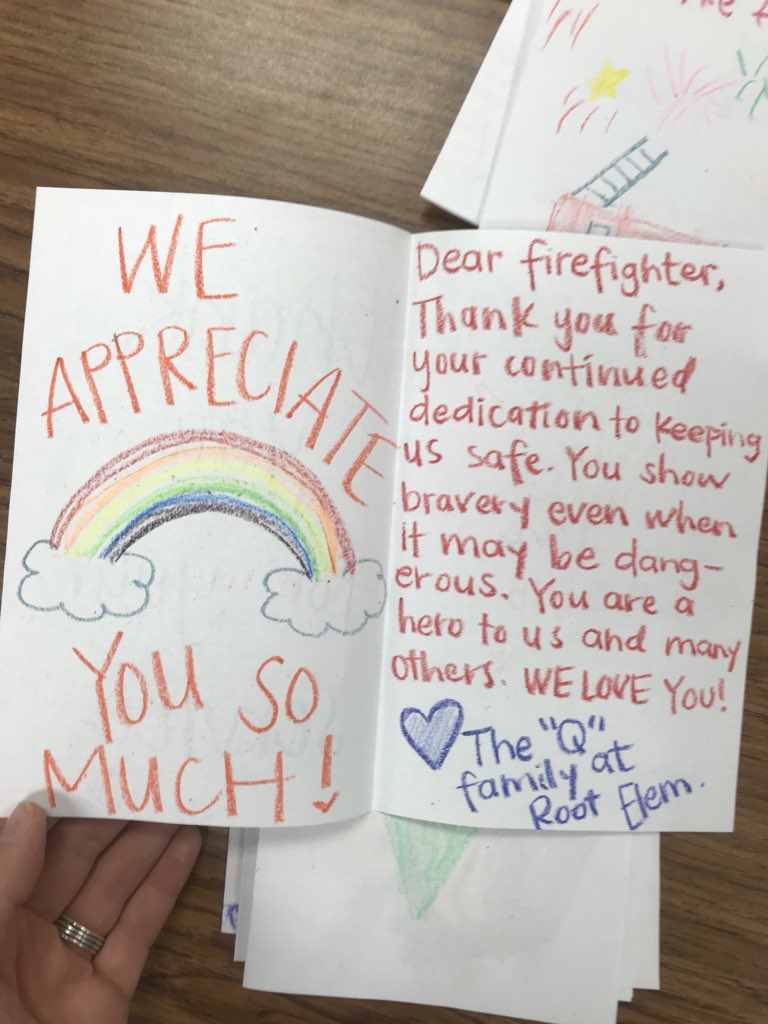 WE
APPRECIATE
YOU SO
MUCH!
Dear firefighter,
Thank you for
your continued
dedication to keeping
us safe. You show
bravery even when
it may be dang-
erous. You are a
hero to us and many
others. WE LOVE YOU!
The "Q"
family at
Root Elem.